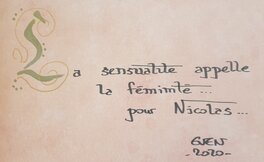 La sensualité appelle
la féminité...
pour Nicolas...
GWEN
-2020-